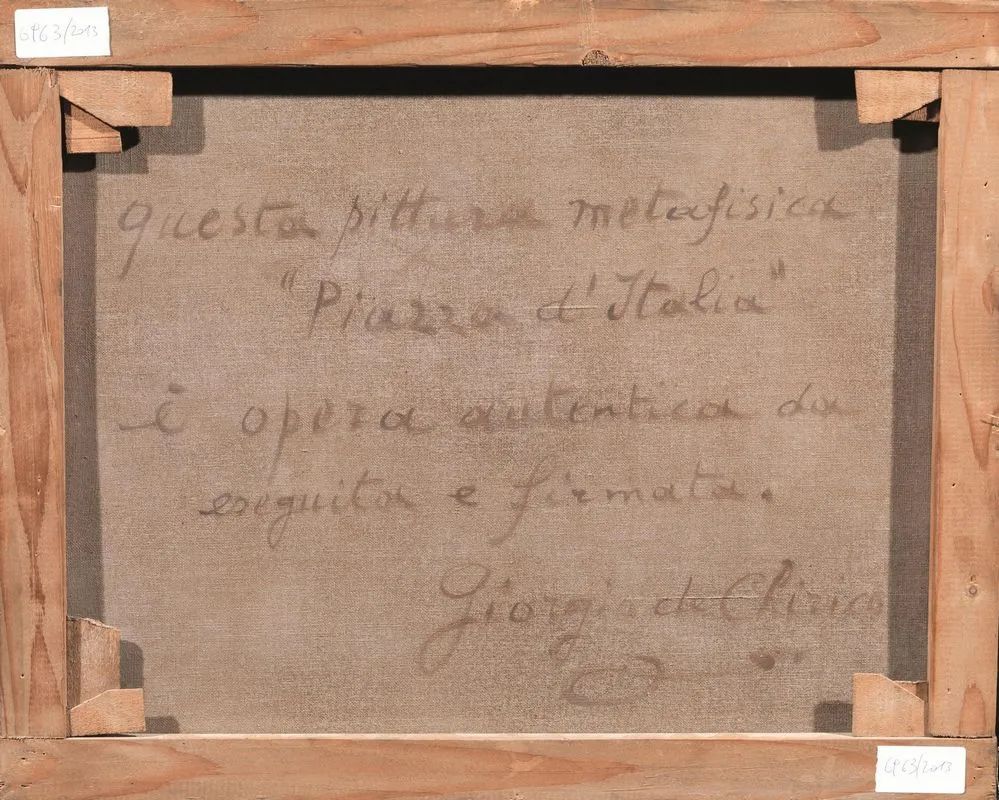 6963/2013
questa pittura metafisica
"Piazza d'Italia"
è opera autentica da
eseguita e firmata.
Giorgio de Chirico
6963/2013